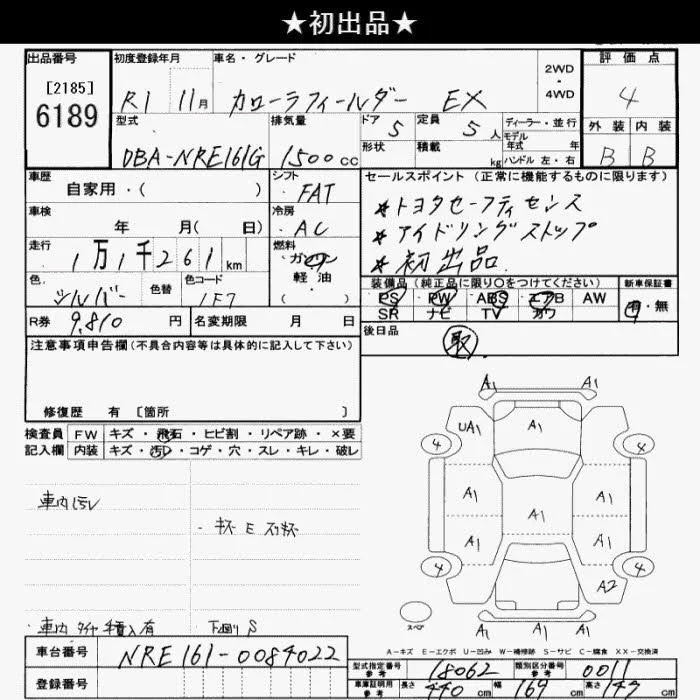 ★初出品★
出品番号
[2185]
6189
初度登録年月
R1 11月
車名・グレード
カローラフィールダー EX
2WD
・
4WD
評価点
4
外装 内装
B B
型式
DBA-NRE161G
排気量
1500cc
ドア 5
定員 5人
形状
積載 kg
ディーラー・並行
モデル年式 年
ハンドル 左・右
車歴
自家用・( )
シフト
FAT
車検
年 月( 日)
冷房
AC
走行
1万1千261km
燃料
ガソリン
・
軽油
( )
色
シルバー
色替
色コード
1F7
R券 9,810円
名変期限 月 日
セールスポイント(正常に機能するものに限ります)
★トヨタセーフティセンス
★アイドリングストップ
★初出品
装備品(純正品に限り○をつけてください)
PS PW ABS エアB AW
SR ナビ TV カワ
新車保証書
有・無
後日品
取
注意事項申告欄(不具合内容等は具体的に記入して下さい)
修復歴 有 [箇所 ]
検査員記入欄
FW キズ・飛石・ヒビ割・リペア跡・×要
内装 キズ・汚レ・コゲ・穴・スレ・キレ・破レ
車内汚レ
車内タイヤ積入有
下廻りS
A1 A1
UA1 A1
4 4
A1 A1
A1
A1 A1
4 4
A2
A1 A1
スペア
A-キズ E-エクボ U-凹み W-補修跡 S-サビ C-腐食 XX-交換済
車台番号 NRE161-0084022
登録番号
型式指定番号 参考 18062
類別区分番号 参考 0011
車庫証明用 参考 長さ 440cm 幅 169cm 高さ 147cm